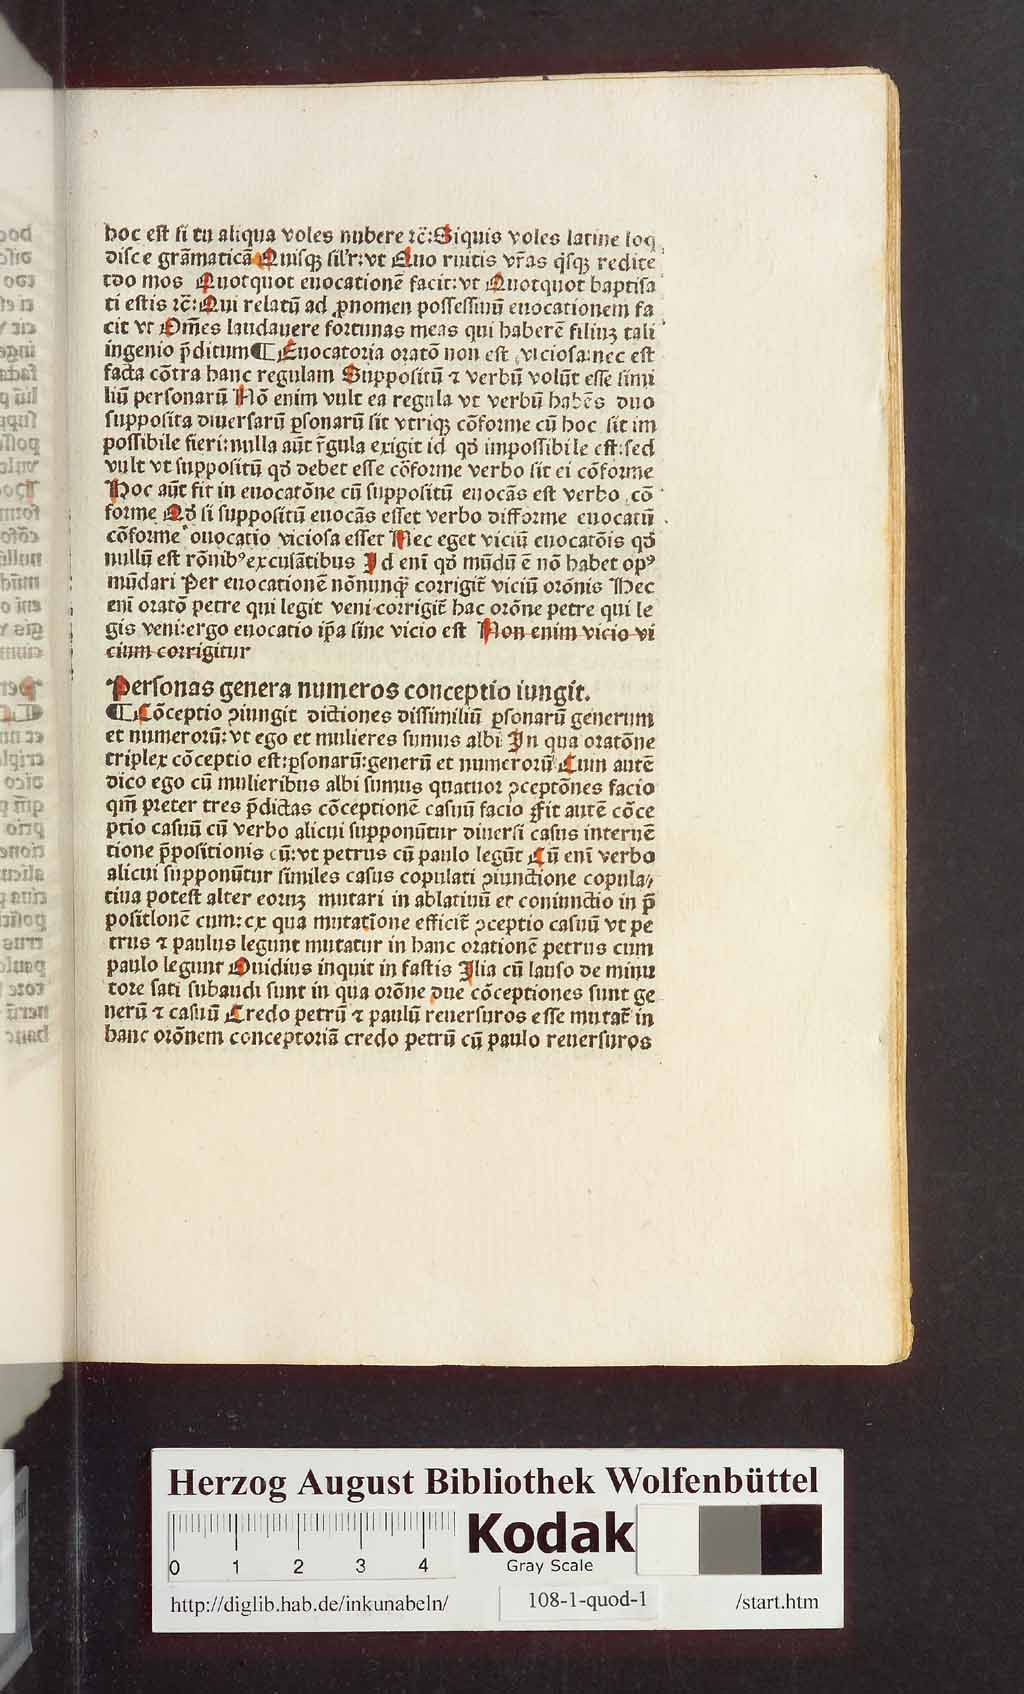 hoc est si tu aliqua voles nubere ⁊c̄: Siquis voles latine loq
disce gram̄aticā Quisqꝫ sil'r: vt Quo ruitis vr̄as q̄sqꝫ redite
tdo mos Quotquot euocationē facit: vt Quotquot baptisa
ti estis ⁊c̄: Qui relatū ad ꝓnomen possessiuū euocationem fa
cit vt Om̄es laudauere fortunas meas qui haberē filiuꝫ tali
ingenio p̄ditum ¶ Euocatoria oratō non est viciosa: nec est
facta cōtra hanc regulam Suppositū ⁊ verbū volūt esse simi
liū personarū Nō enim vult ea regula vt verbū habēs duo
supposita diuersarū ꝑsonarū sit vtriqꝫ cōforme cū hoc sit im
possibile fieri: nulla aūt r̄gula exigit id qd̄ impossibile est: sed
vult vt suppositū qd̄ debet esse cōforme verbo sit ei cōforme
Hoc aūt fit in euocatōne cū suppositū euocās est verbo cō
forme Qd̄ si suppositū euocās esset verbo difforme euocatū
cōforme ouocatio viciosa esset Nec eget viciū euocatōis qd̄
nullū est rōnibꝰ excusātibus Id eni̅ qd̄ mūdū ē nō habet opꝰ
mūdari Per euocationē nōnunqꝫ corrigit̄ viciū orōnis Hec
eni̅ oratō petre qui legit veni corrigit̄ hac orōne petre qui le
gis veni: ergo euocatio ip̄a sine vicio est Non enim vicio vi
cium corrigitur
Personas genera numeros conceptio iungit.
¶ Cōceptio ꝯiungit dictiones dissimiliū ꝑsonarū generum
et numerorū: vt ego et mulieres sumus albi In qua oratōne
triplex cōceptio est: ꝑsonarū: generū et numerorū Cum autē
dico ego cū mulieribus albi sumus quatuor ꝯceptōnes facio
qm̄ preter tres p̄dictas cōceptionē casuū facio Fit autē cōce
ptio casuū cū verbo alicui supponūtur diuersi casus interuē
tione p̄positionis cū: vt petrus cū paulo legūt Cū eni̅ verbo
alicui supponūtur similes casus copulati ꝯiunctione copula⸗
tiua potest alter eoruꝫ mutari in ablatiuū et coniunctio in p̄
positlonē cum: ex qua mutatione efficit̄ ꝯceptio casuū vt pe
trus ⁊ paulus legunt mutatur in hanc orationē petrus cum
paulo legunt Ouidius inquit in fastis Ilia cū lauso de minu
tore sati subaudi sunt in qua orōne due cōceptiones sunt ge
nerū ⁊ casuū Credo petrū ⁊ paulū reuersuros esse mutat̄ in
hanc orōnem conceptoriā credo petrū cū paulo reuersuros
Herzog August Bibliothek Wolfenbüttel
0 1 2 3 4
Kodak
Gray Scale
http://diglib.hab.de/inkunabeln/ 108-1-quod-1 /start.htm